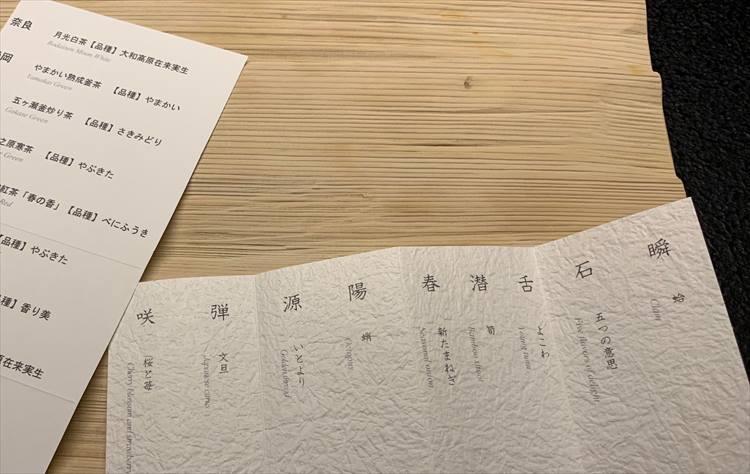 奈良
月光白茶【品種】大和高原在来実生
Moon White
岡
やまかい熟成釜茶 【品種】やまかい
Yamakai Green
五ヶ瀬釜炒り茶 【品種】さきみどり
Gokase Green
之原寒茶 【品種】やぶきた
Green
紅茶「春の香」【品種】べにふうき
Red
【品種】やぶきた
種】香り美
原在来実生
瞬
蛤
Clam
石
五つの意思
Five flavors of delight
舌
よこわ
tuna
潜
筍
Bamboo shoot
春
新たまねぎ
onion
陽
蛸
Octopus
源
いとより
Golden thread
弾
文旦
Japanese citrus
咲
桜と苺
Cherry blossom and strawberry